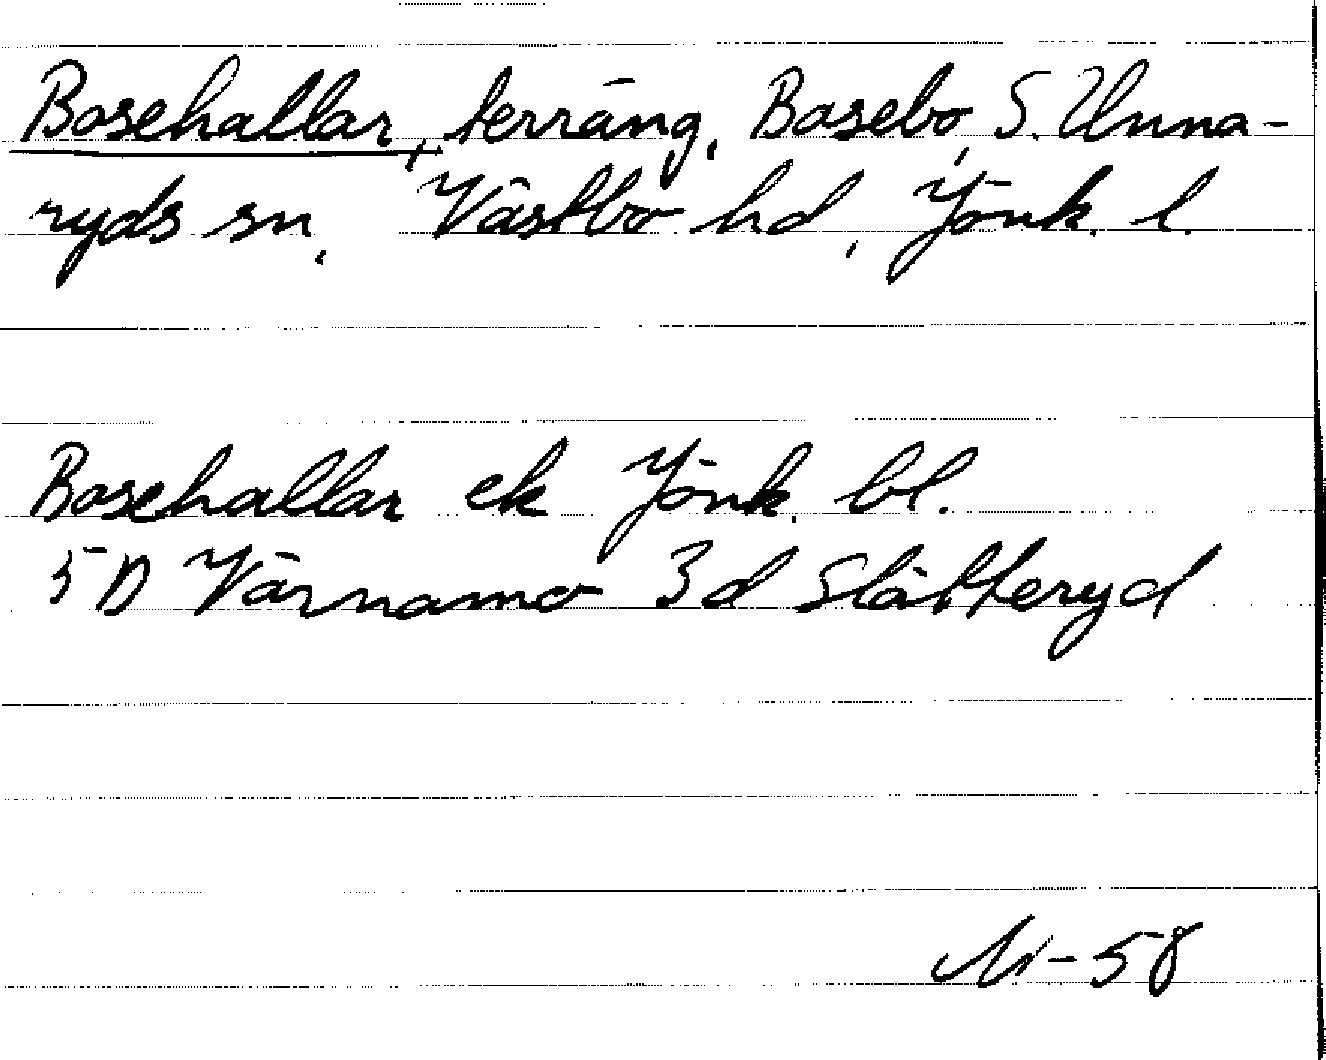 Bosehallar, terräng, Bosebo, S. Unna-
ryds sn, Västbo hd, Jönk. l.
Bosehallar ek Jönk. bl.
5D Värnamo 3d Slätteryd
-58